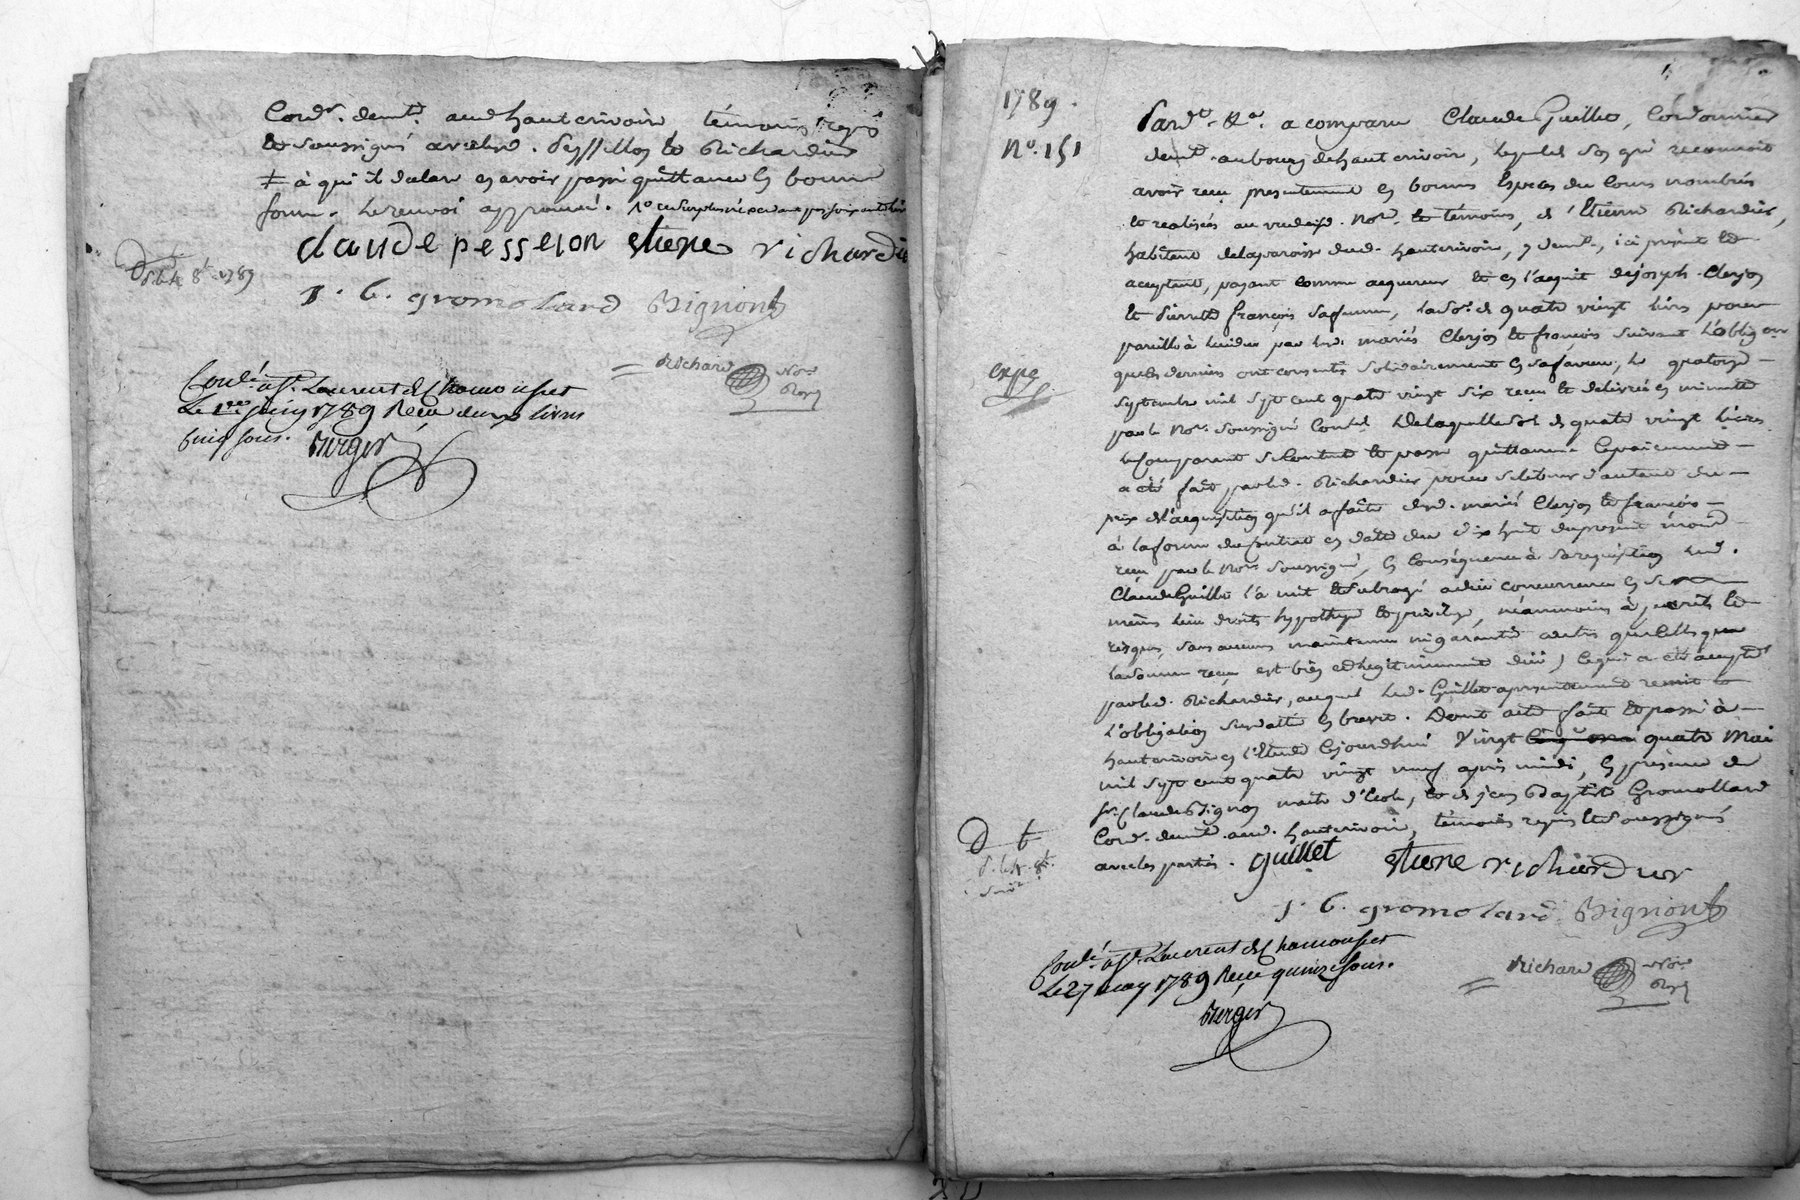 Cord.r demt. aud haut rivoire témoins requis
et soussignés avec led. Pesselon et Richardier
à qui il declare en avoir passé quittance en bonne
forme. le renvoi approuvé.
claude pesselon etiene richardie
d. t.
8t. 1789
J. B. gromolard Bignon
Richard Nore
Royl
Conlé. à St. Laurent de Chamousset
Le 1er juin 1789 Reçu deux livres
cinq sous. Berger
1789.
No. 151
Pardt. No. a comparu Claude Guillet, Cordonnier
demt. au bourg de haut rivoire, lequel de son gré reconnoit
avoir reçu presentement en bonnes Especes du Cours nombrés
et realisés au vu dud. Nore. et témoins, d'Etienne Richardier,
habitant de la paroisse dud. hauterivoire, y demt., ici présent et
acceptant, payant comme acquereur et en l'acquit de joseph Clerjon
et Pierrette françois sa femme, la so. de quatre vingt livres pour
pareille à lui due par lesd. mariés Clerjon et francois suivant l'oblig.on
que les derniers ont consentis solidairement en sa faveur, le quatorze
septembre mil sept cent quatre vingt six reçue et delivrée en minutte
par le Nore. soussigné Conlé. De laquelle so. de quatre vingt livres
le Comparant se Contente et passe quittance le paiement
a été fait par led. Richardier pour se liberer d'autant du
prix de l'acquisition qu'il a faite desd. mariés Clerjon et francois
à la forme du contrat en datte du dix huit du present mois
reçu par le Nore. soussigné, en Conséquence à sa requisition led.
Claude Guillet l'a mit et subrogé a due concurrence en ses
mêmes lieu droits hypotheque et privilege, néanmoins à ses perils et
risques, sans aucune maintenue ni garantie autres que celle que
la somme reçue est bien et legitimement due, ce qui a été accepté
par led. Richardier, auquel led. Guillet a presentement remit
l'obligation susdatte en brevet. Dont acte fait et passé à
hauterivoire en l'Etude cejourdhui Vingt quatre Mai
mil sept cent quatre vingt neuf après midi, en présence de
sr. Claude Bignon maitre d'école, et de jean Baptiste Gromollard
Cord.r demt. aud. hauterivoire, témoins requis et soussignés
avec les parties. guillet etiene richierdier
expe
d t
J. B. gromolard Bignon
Richard Nore
Royl
Conlé. à St. Laurent de Chamousset
Le 27 may 1789 Reçu quinze sous.
Berger